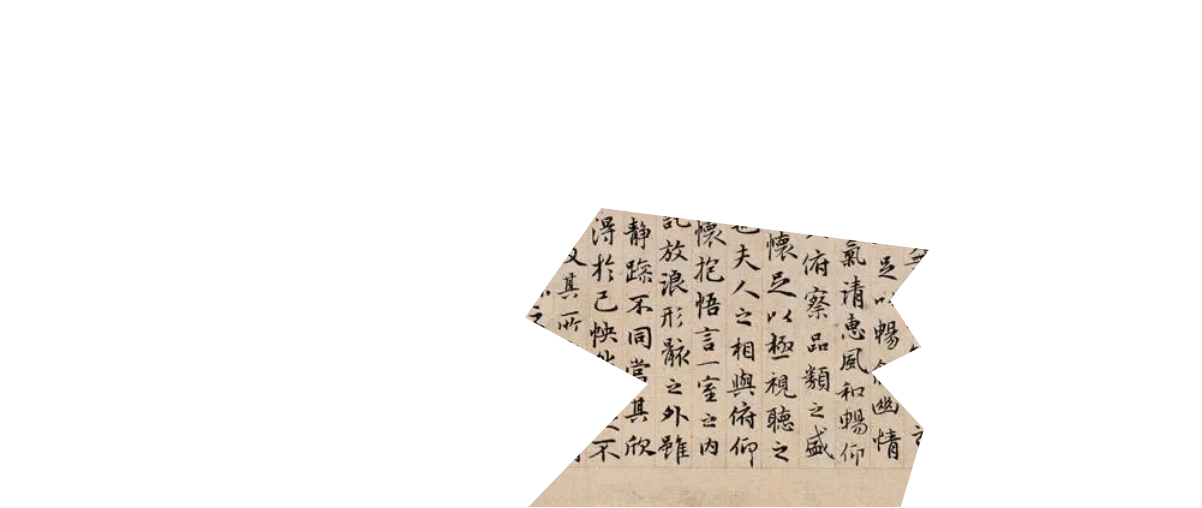 足以暢幽情
氣清惠風和暢仰
俯察品類之盛
懷足以極視聽之
也夫人之相與俯仰
懷抱悟言一室之内
託放浪形骸之外雖
靜躁不同當其欣
得於己怏不
其所
之